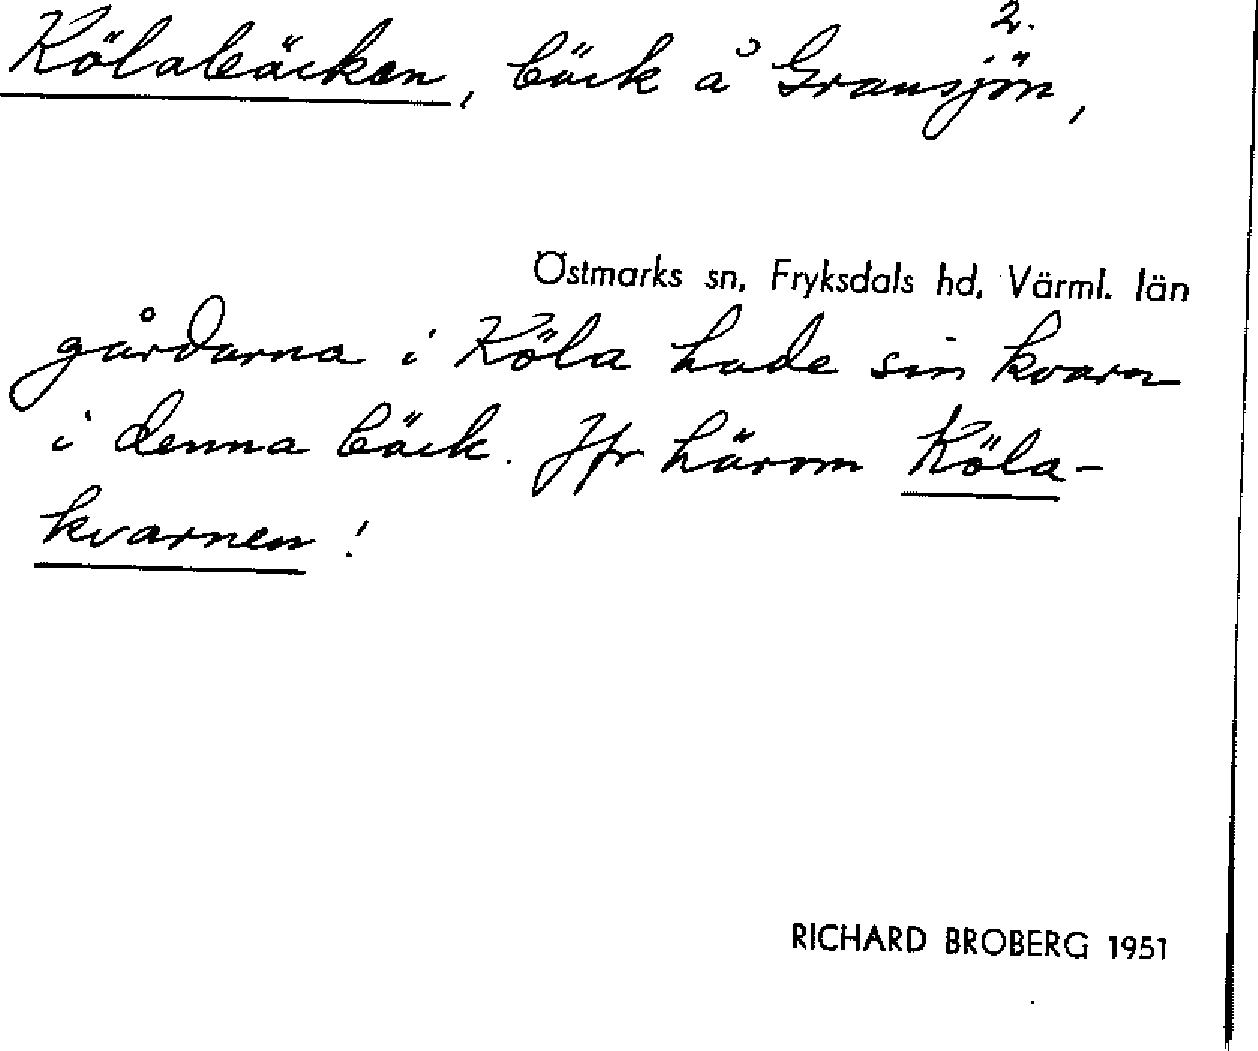 2.
Kölabäcken, bäck å Gransjön,
Östmarks sn, Fryksdals hd, Värml. län
gårdarna i Köla hade sin kvarn
i denna bäck. Jfr härom Köla-
kvarnen!
RICHARD BROBERG 1951